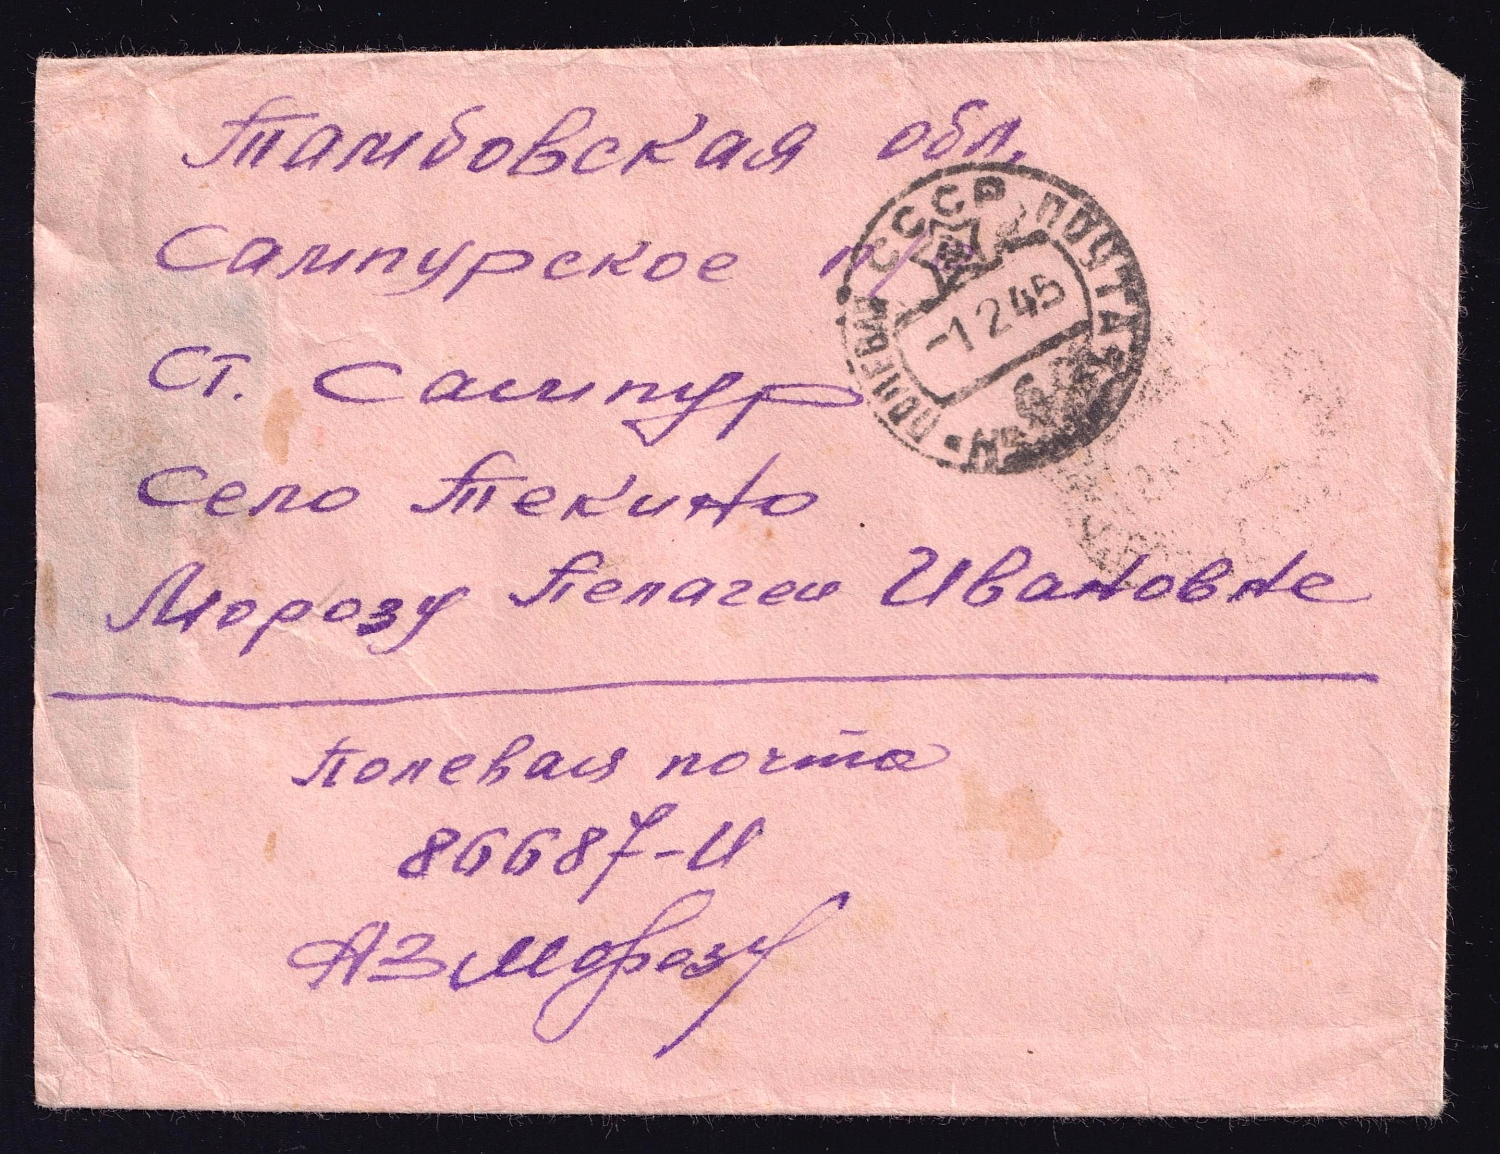 Тамбовская обл.
Сампурское п/о
ст. Сампур
село Текино
Морозу Пелагеи Ивановне
СССР ПОЛЕВАЯ ПОЧТА
-1 2 45
Полевая почта
86687-И
Морозу